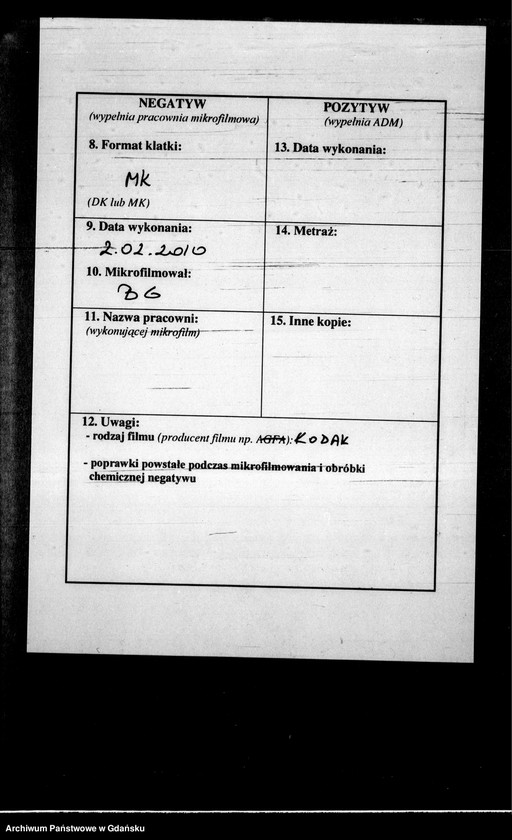 NEGATYW
(wypełnia pracownia mikrofilmowa)
8. Format klatki:
MK
(DK lub MK)
9. Data wykonania:
2.02.2010
10. Mikrofilmował:
BG
11. Nazwa pracowni:
(wykonującej mikrofilm)
POZYTYW
(wypełnia ADM)
13. Data wykonania:
14. Metraż:
15. Inne kopie:
12. Uwagi:
- rodzaj filmu (producent filmu np. AGFA): KODAK
- poprawki powstałe podczas mikrofilmowania i obróbki
chemicznej negatywu
Archiwum Państwowe w Gdańsku